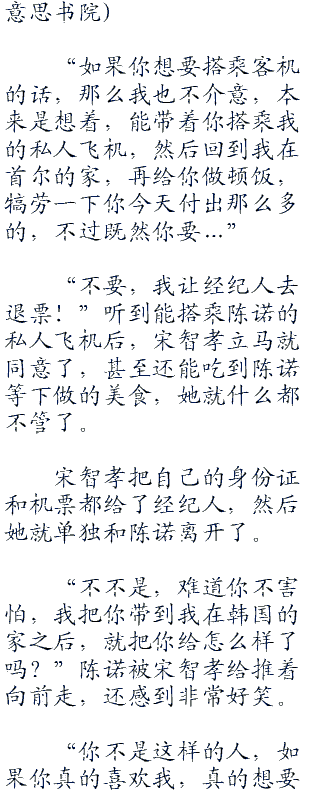 意思书院)
“如果你想要搭乘客机
的话，那么我也不介意，本
来是想着，能带着你搭乘我
的私人飞机，然后回到我在
首尔的家，再给你做顿饭，
犒劳一下你今天付出那么多
的，不过既然你要…”
“不要，我让经纪人去
退票！”听到能搭乘陈诺的
私人飞机后，宋智孝立马就
同意了，甚至还能吃到陈诺
等下做的美食，她就什么都
不管了。
宋智孝把自己的身份证
和机票都给了经纪人，然后
她就单独和陈诺离开了。
“不不是，难道你不害
怕，我把你带到我在韩国的
家之后，就把你给怎么样了
吗？”陈诺被宋智孝给推着
向前走，还感到非常好笑。
“你不是这样的人，如
果你真的喜欢我，真的想要